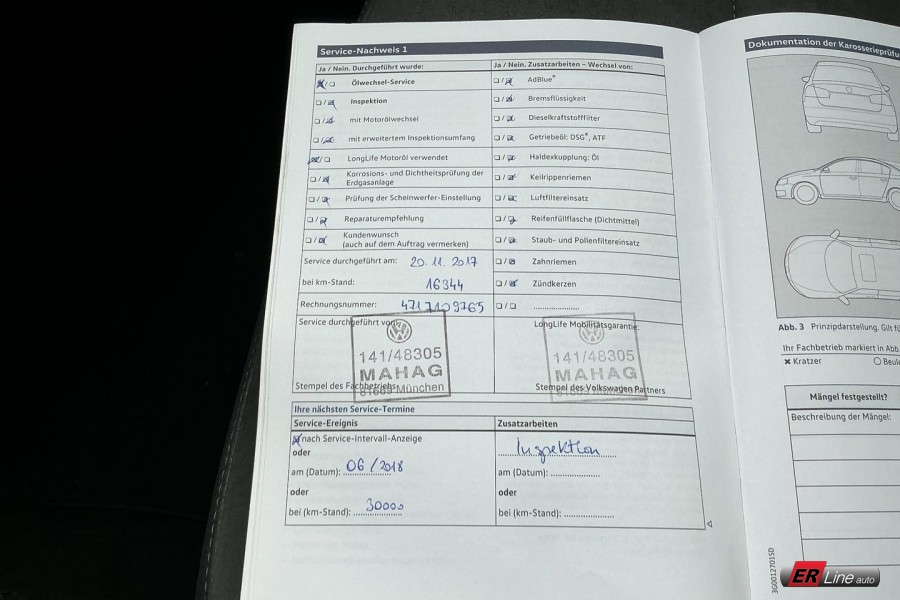 Service-Nachweis 1
Ja / Nein. Durchgeführt wurde:
Ölwechsel-Service
Inspektion
mit Motorölwechsel
mit erweitertem Inspektionsumfang
LongLife Motoröl verwendet
Korrosions- und Dichtheitsprüfung der
Erdgasanlage
Prüfung der Scheinwerfer-Einstellung
Reparaturempfehlung
Kundenwunsch
(auch auf dem Auftrag vermerken)
Service durchgeführt am: 20.11.2017
bei km-Stand: 16344
Rechnungsnummer: 4717109765
Ja / Nein. Zusatzarbeiten – Wechsel von:
AdBlue®
Bremsflüssigkeit
Dieselkraftstofffilter
Getriebeöl: DSG®, ATF
Haldexkupplung: Öl
Keilrippenriemen
Luftfiltereinsatz
Reifenfüllflasche (Dichtmittel)
Staub- und Pollenfiltereinsatz
Zahnriemen
Zündkerzen
Service durchgeführt von:
141/48305
MAHAG
81669 München
Stempel des Fachbetriebs
LongLife Mobilitätsgarantie:
141/48305
MAHAG
Stempel des Volkswagen Partners
Ihre nächsten Service-Termine
Service-Ereignis
nach Service-Intervall-Anzeige
oder
am (Datum): 06/2018
oder
bei (km-Stand): 30000
Zusatzarbeiten
Inspektion
am (Datum):
oder
bei (km-Stand):
Dokumentation der
Abb. 3 Prinzipdarstellung. Gilt
Ihr Fachbetrieb markiert in Abb.
Kratzer
Mängel festgestellt?
Beschreibung der Mängel:
3G0012701SD
ER Line auto